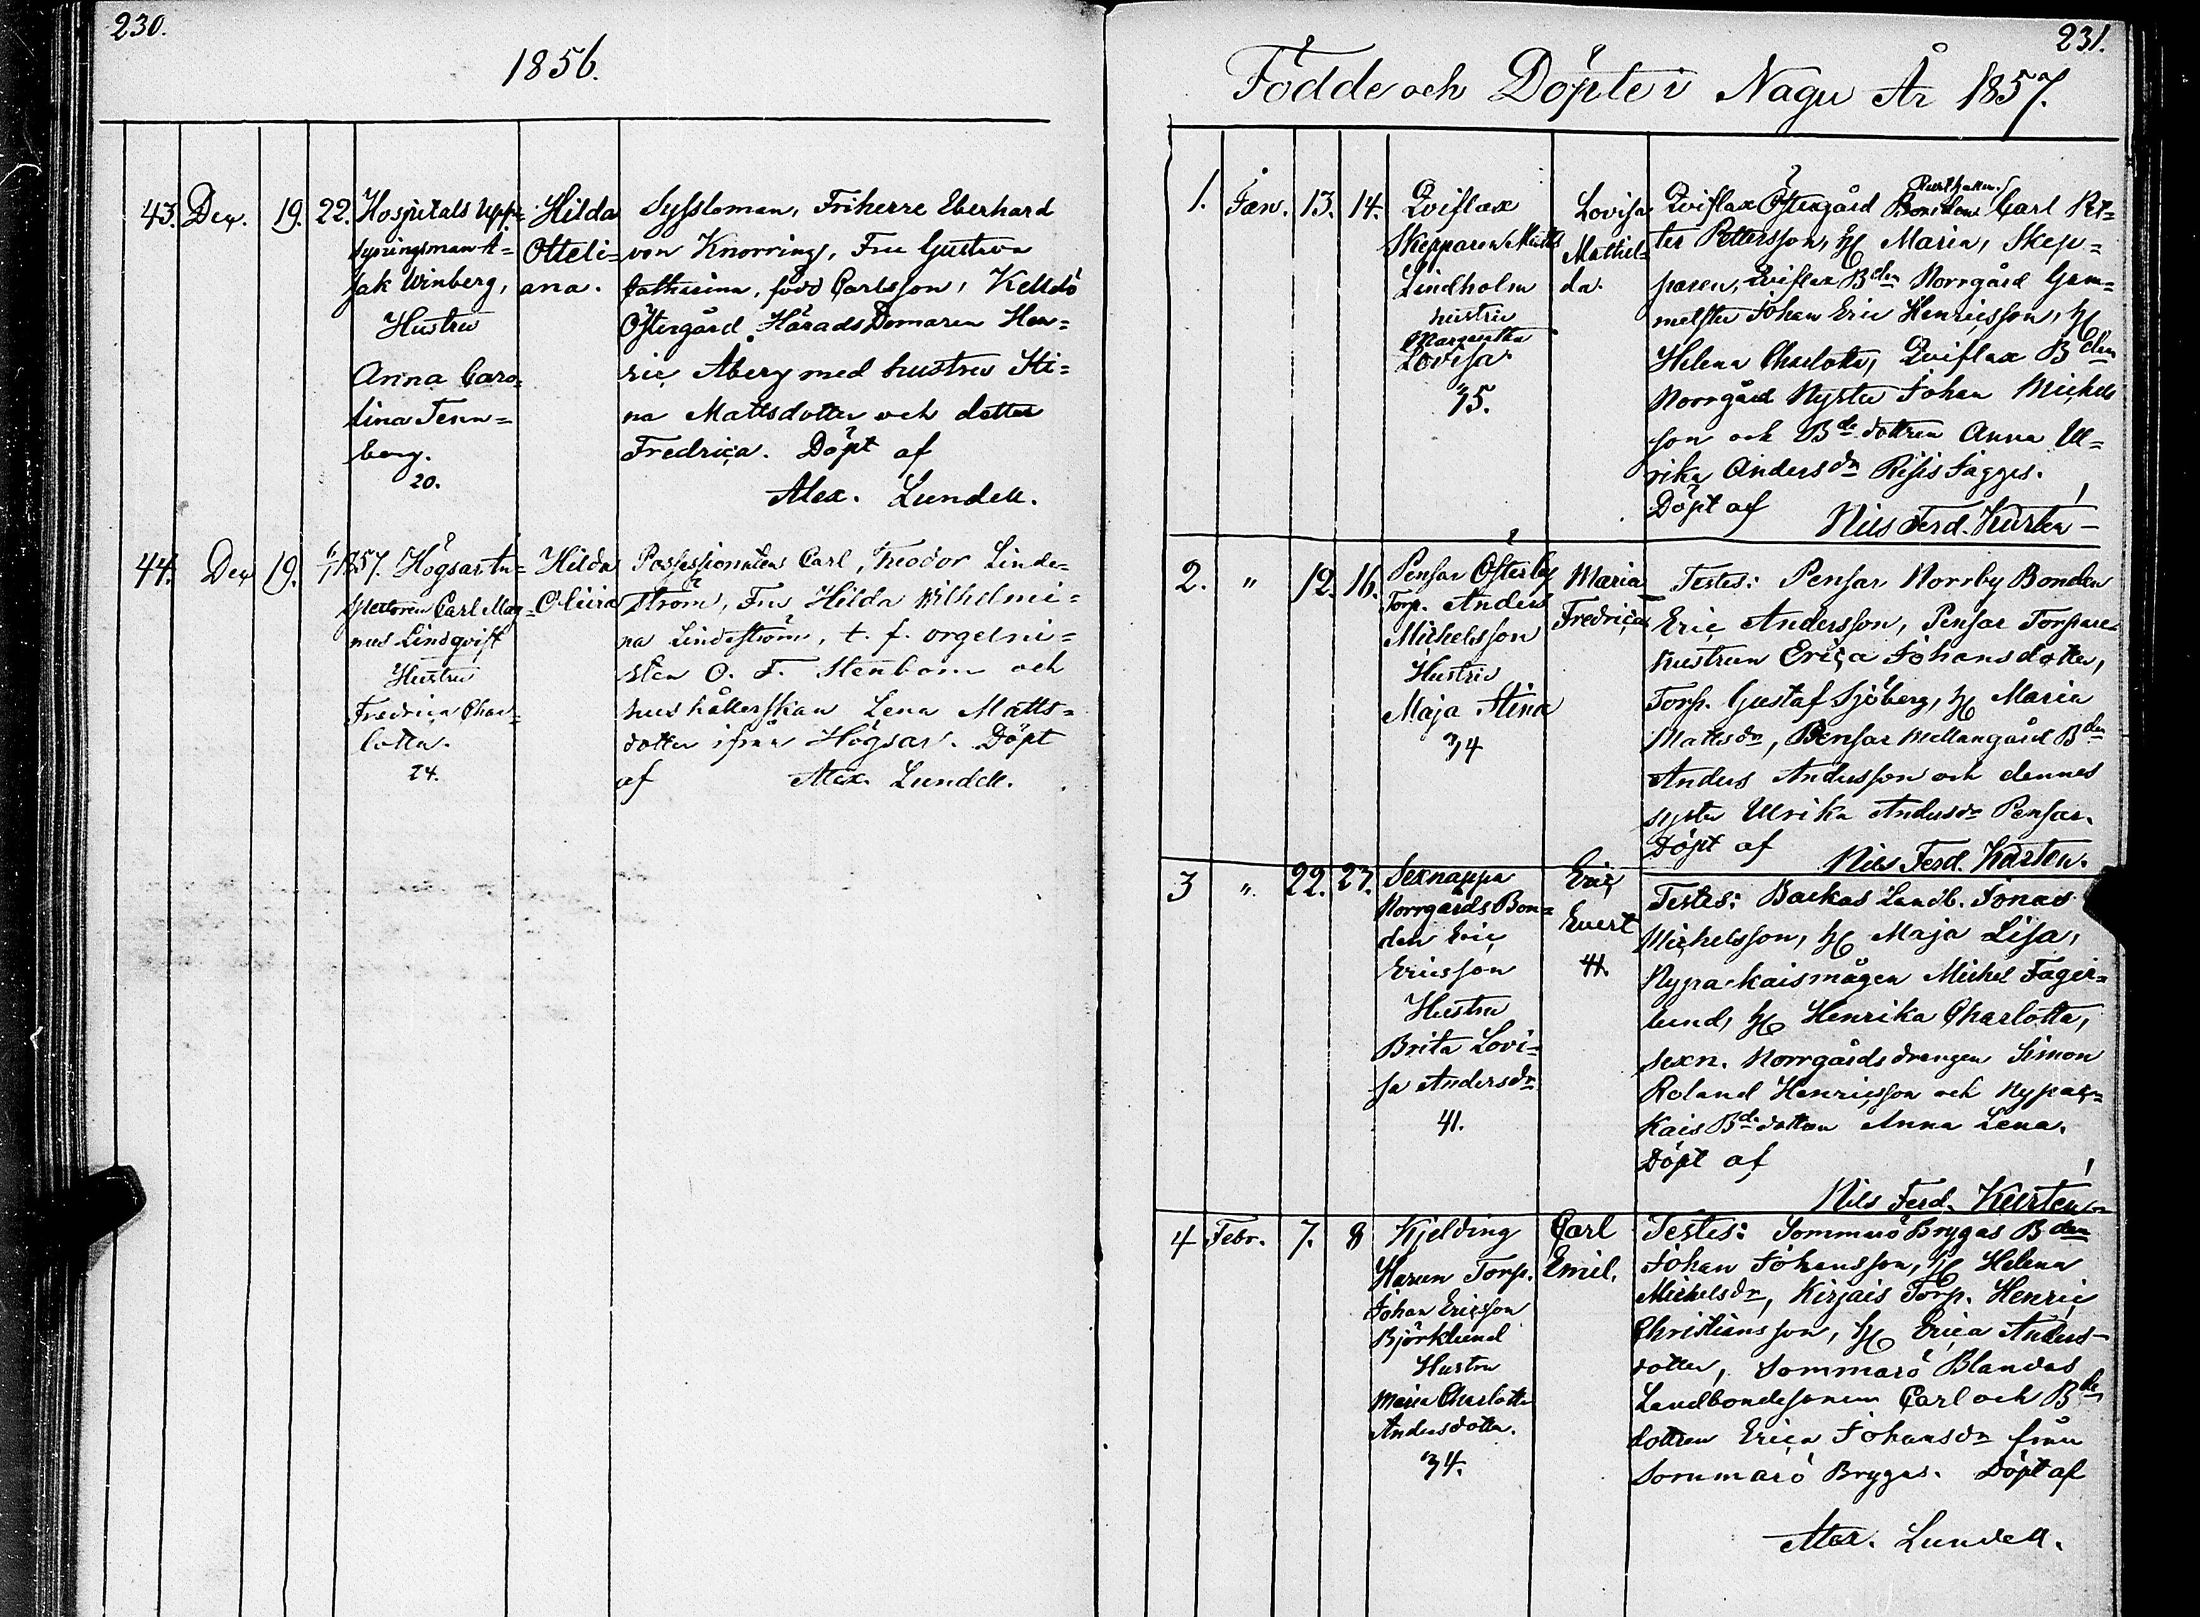 230.
1856.
43. Dec. 19. 22.
Hospitals upp=
syningsman I=
sak Winberg,
Hustru
Anna Caro=
lina Tenn=
berg.
20.
Hilda
Otteli=
ana.
Syssloman, Friherre Eberhard
von Knorring, Fru Gustava
Catharina, född Carlsson, Kelldö
Östergård HäradsDomaren Hen=
ric Åberg med hustru Sti=
na Mattsdotter och dotter
Fredrica. Döpt af
Alex. Lundell.
44. Dec 19. 6/1 1857.
Högsar In=
spektoren Carl Mag=
nus Lindqvist
Hustru
Fredrica Char=
lotta.
24.
Hilda
Olivia
Possessionaten Carl Theodor Linde=
ström, Fru Hilda Wilhelmi=
na Lindeström, t. f. orgelni=
sten O. F. Stenbom och
hushållerskan Lena Matts=
dotter ifrån Högsar. Döpt
af Alex. Lundell.
231.
Födde och Döpte i Nagu År 1857.
1. Jan. 13. 14.
Qviflax
Skepparen Matts
Lindholm
hustru
Margaretha
Lovisa
35.
Lovisa
Mathil=
da.
Qviflax Östergård Bonden Carl Pe=
ter Pettersson, H Maria, Skep=
paren, Qviflax Bden Norrgård Gam=
melste Johan Eric Henricsson, H
Helena Charlotta, Qviflax Bden
Norrgård Nyste Johan Michels
son och Bde dottren Anna Ul=
rika Andersdr Risis Jägges.
Döpt af
Nils Ferd. Kurtén
2. " 12. 16.
Pensar Österby
Torp. Anders
Michelsson
Hustru
Maja Stina
34
Maria
Fredrica
Testes: Pensar Norrby Bonden
Eric Andersson, Pensar Torpare
hustrun Erica Johansdotter,
Torp. Gustaf Sjöberg, H Maria
Mattsdr, Pensar Mellangård Bden
Anders Andersson och dennes
syster Ulrika Andersdr Pensar.
Döpt af
Nils Ferd. Kurtén.
3 " 22. 27.
Sexnappa
Norrgårds Bon=
den Eric
Ericsson
Hustru
Brita Lovi=
sa Andersdr
41.
Eric
Evert
41.
Testes: Backas Landb. Jonas
Michelsson, H Maja Lisa,
Nypa-kaismågen Michel Fager=
lund, H Henrika Charlotta,
Sexn. Norrgårds drengen Simon
Roland Henricsson och Nypar=
kais Bde dottren Anna Lena.
Döpt af
Nils Ferd. Kurtén
4 Febr. 7. 8
Kjelding
Harun Torp.
Johan Ericsson
Björklund
Hustru
Maria Charlotta
Andersdotter.
34.
Carl
Emil.
Testes: Sommarö Brygas Bden
Johan Johansson, H Helena
Michelsdr, Kirjais Torp. Henric
Christiansson, H Erica Anders=
dotter, Sommarö Blandas
Landbondesonen Carl och Bde
dottren Erica Johansdr från
Sommarö Brygas. Döpt af
Alex. Lundell.